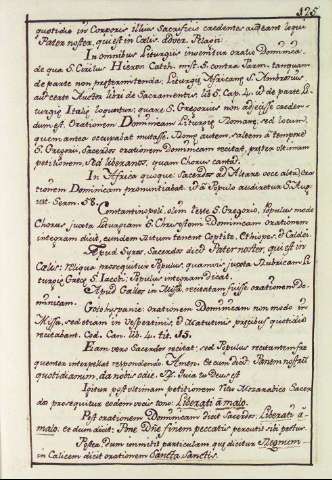 325
quotidie in Corporis illius Sacrificio credentes audeant loqui
Pater noster, qui est in Cælis, et docet Hieron.
In omnibus Liturgiis invenitur oratio Dominica,
de qua S. Cirilus Hieros. Catech. myst. 5. contra Parm. tanquam
de parte non prætermitenda; Liturgiæ Africanæ S. Ambrosius
aut certe Auctor libri de Sacramentis lib. 5. Cap. 4. id de parte Li-
turgiæ Italiæ loquuntur; quare S. Gregorius non adjecisse creden-
dum est Orationem Dominicam Liturgiæ Romanæ, sed locum,
quem antea occupabat mutasse. Romæ autem saltem a tempore
S. Gregorii, Sacerdos orationem Dominicam recitat, præter ultimam
petitionem, Sed libera nos, quam Chorus cantat.
In Africa quoque Sacerdos ad Altare voce alta
orationem Dominicam pronuntiabat, ita Populo audiretur S. Aug-
ust. Serm. 58.
Constantinopoli, olim teste S. Gregorio, Populus modo
Chorus juxta Liturgiam S. Chrysostomi Dominicam orationem
integram dicit, eundem Ritum tenent Coptitæ, Ethiopes, et Caldei
Apud Syros, Sacerdos dicit Pater noster, qui est in
Cælis: reliqua prosequitur Populus; quamvis juxta Rubricam Li-
turgiæ Græcæ S. Jacobi, Populus integram dicat.
Apud Gallos in Missa, recitatam fuisse orationem Do-
minicam.
Gothi hispani: orationem Dominicam non modo in
Missa, sed etiam in Vespertinis, et Matutinis precibus quotidie
recitabant. Cod. Can. lib. 4. tit. 15.
Eam vero Sacerdos recitat, sed Populus recitantem fre-
quenter interpellat respondendo Amen. Et cum dicit: Panem nostrum
quotidianum, da nobis odie. Rp. Quia tu Deus es
Igitur post ultimam petitionem Ritu Mozarabico Sacer-
dos prosequitur eodem vocis tono: Liberati a malo.
Post orationem Dominicam dicit Sacerdos: Liberati a
malo, et dum dicit: Pone Dñe finem peccatis percutit sibi pectus.
Postea, dum immittit particulam quæ dicitur Regnum
in Calicem dicit orationem Sancta Sanctis.